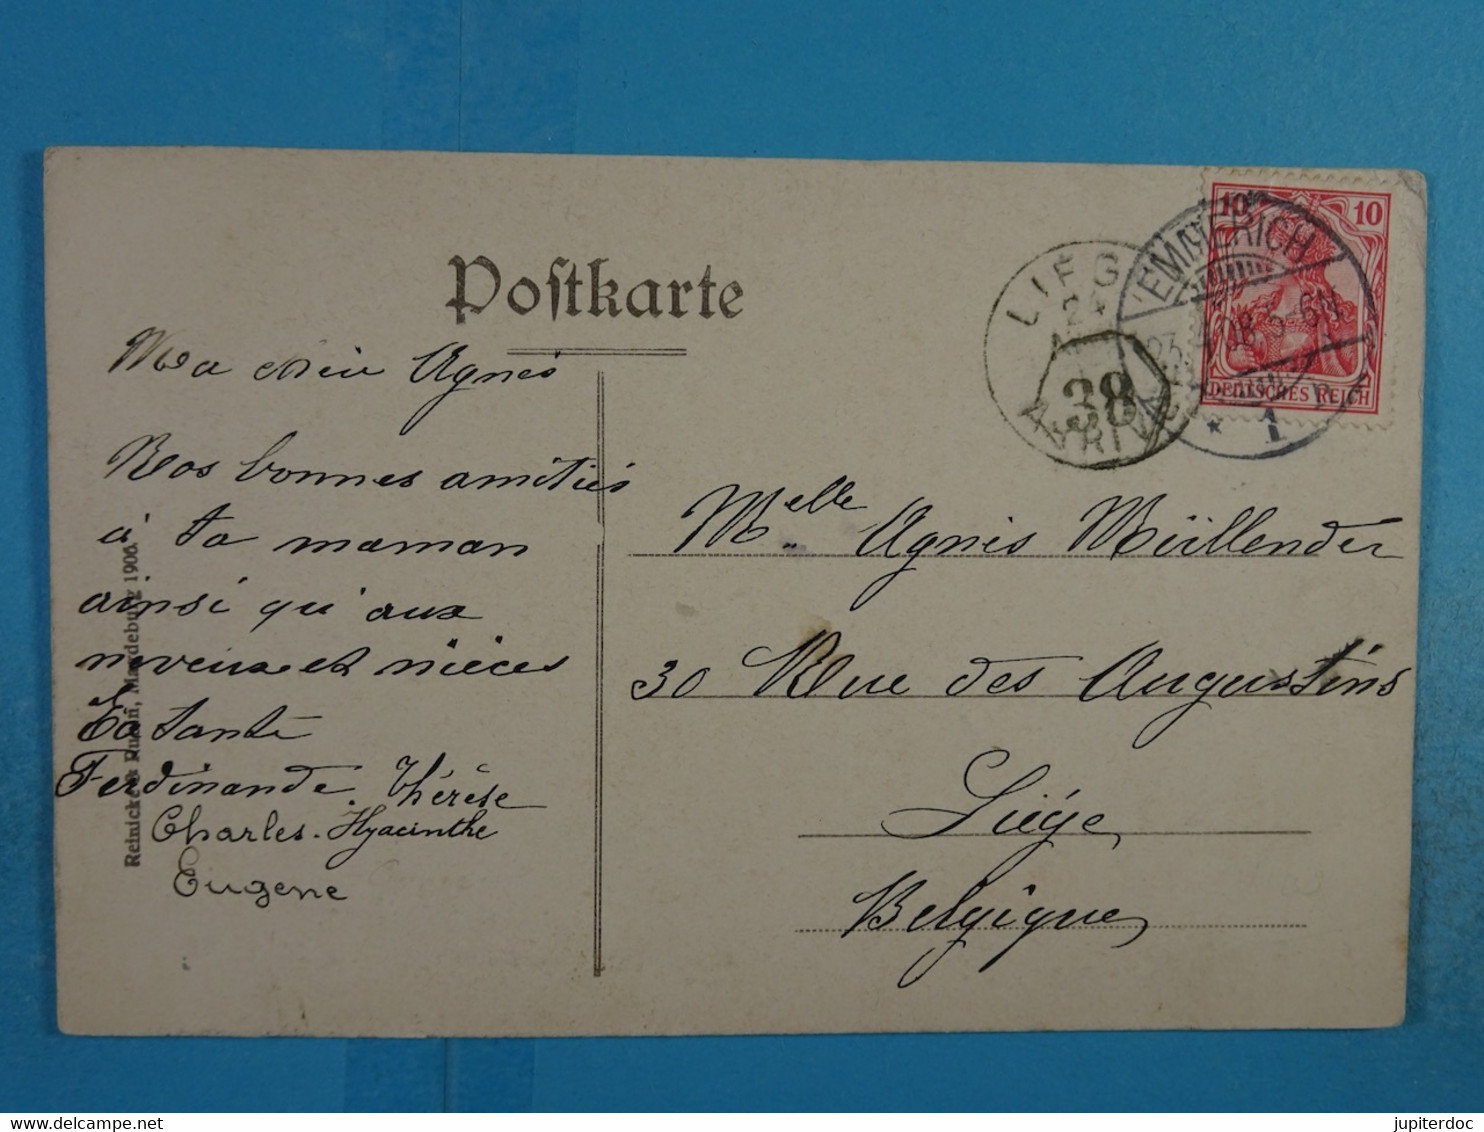 Postkarte
Ma chère Agnès
Nos bonnes amitiés
à ta maman
ainsi qu'aux
neveux et nièces
Ta tante
Ferdinande. Thérèse
Charles. Hyacinthe
Eugene
Reinicke & Rubin, Magdeburg 1906.
LIEG
24
ARRIV
38
EMMERICH
23. 08. 5-6N.
* 1
10 10
DEUTSCHES REICH
Melle Agnès Müllender
30 Rue des Augustins
Liége
Belgique
jupiterdoc